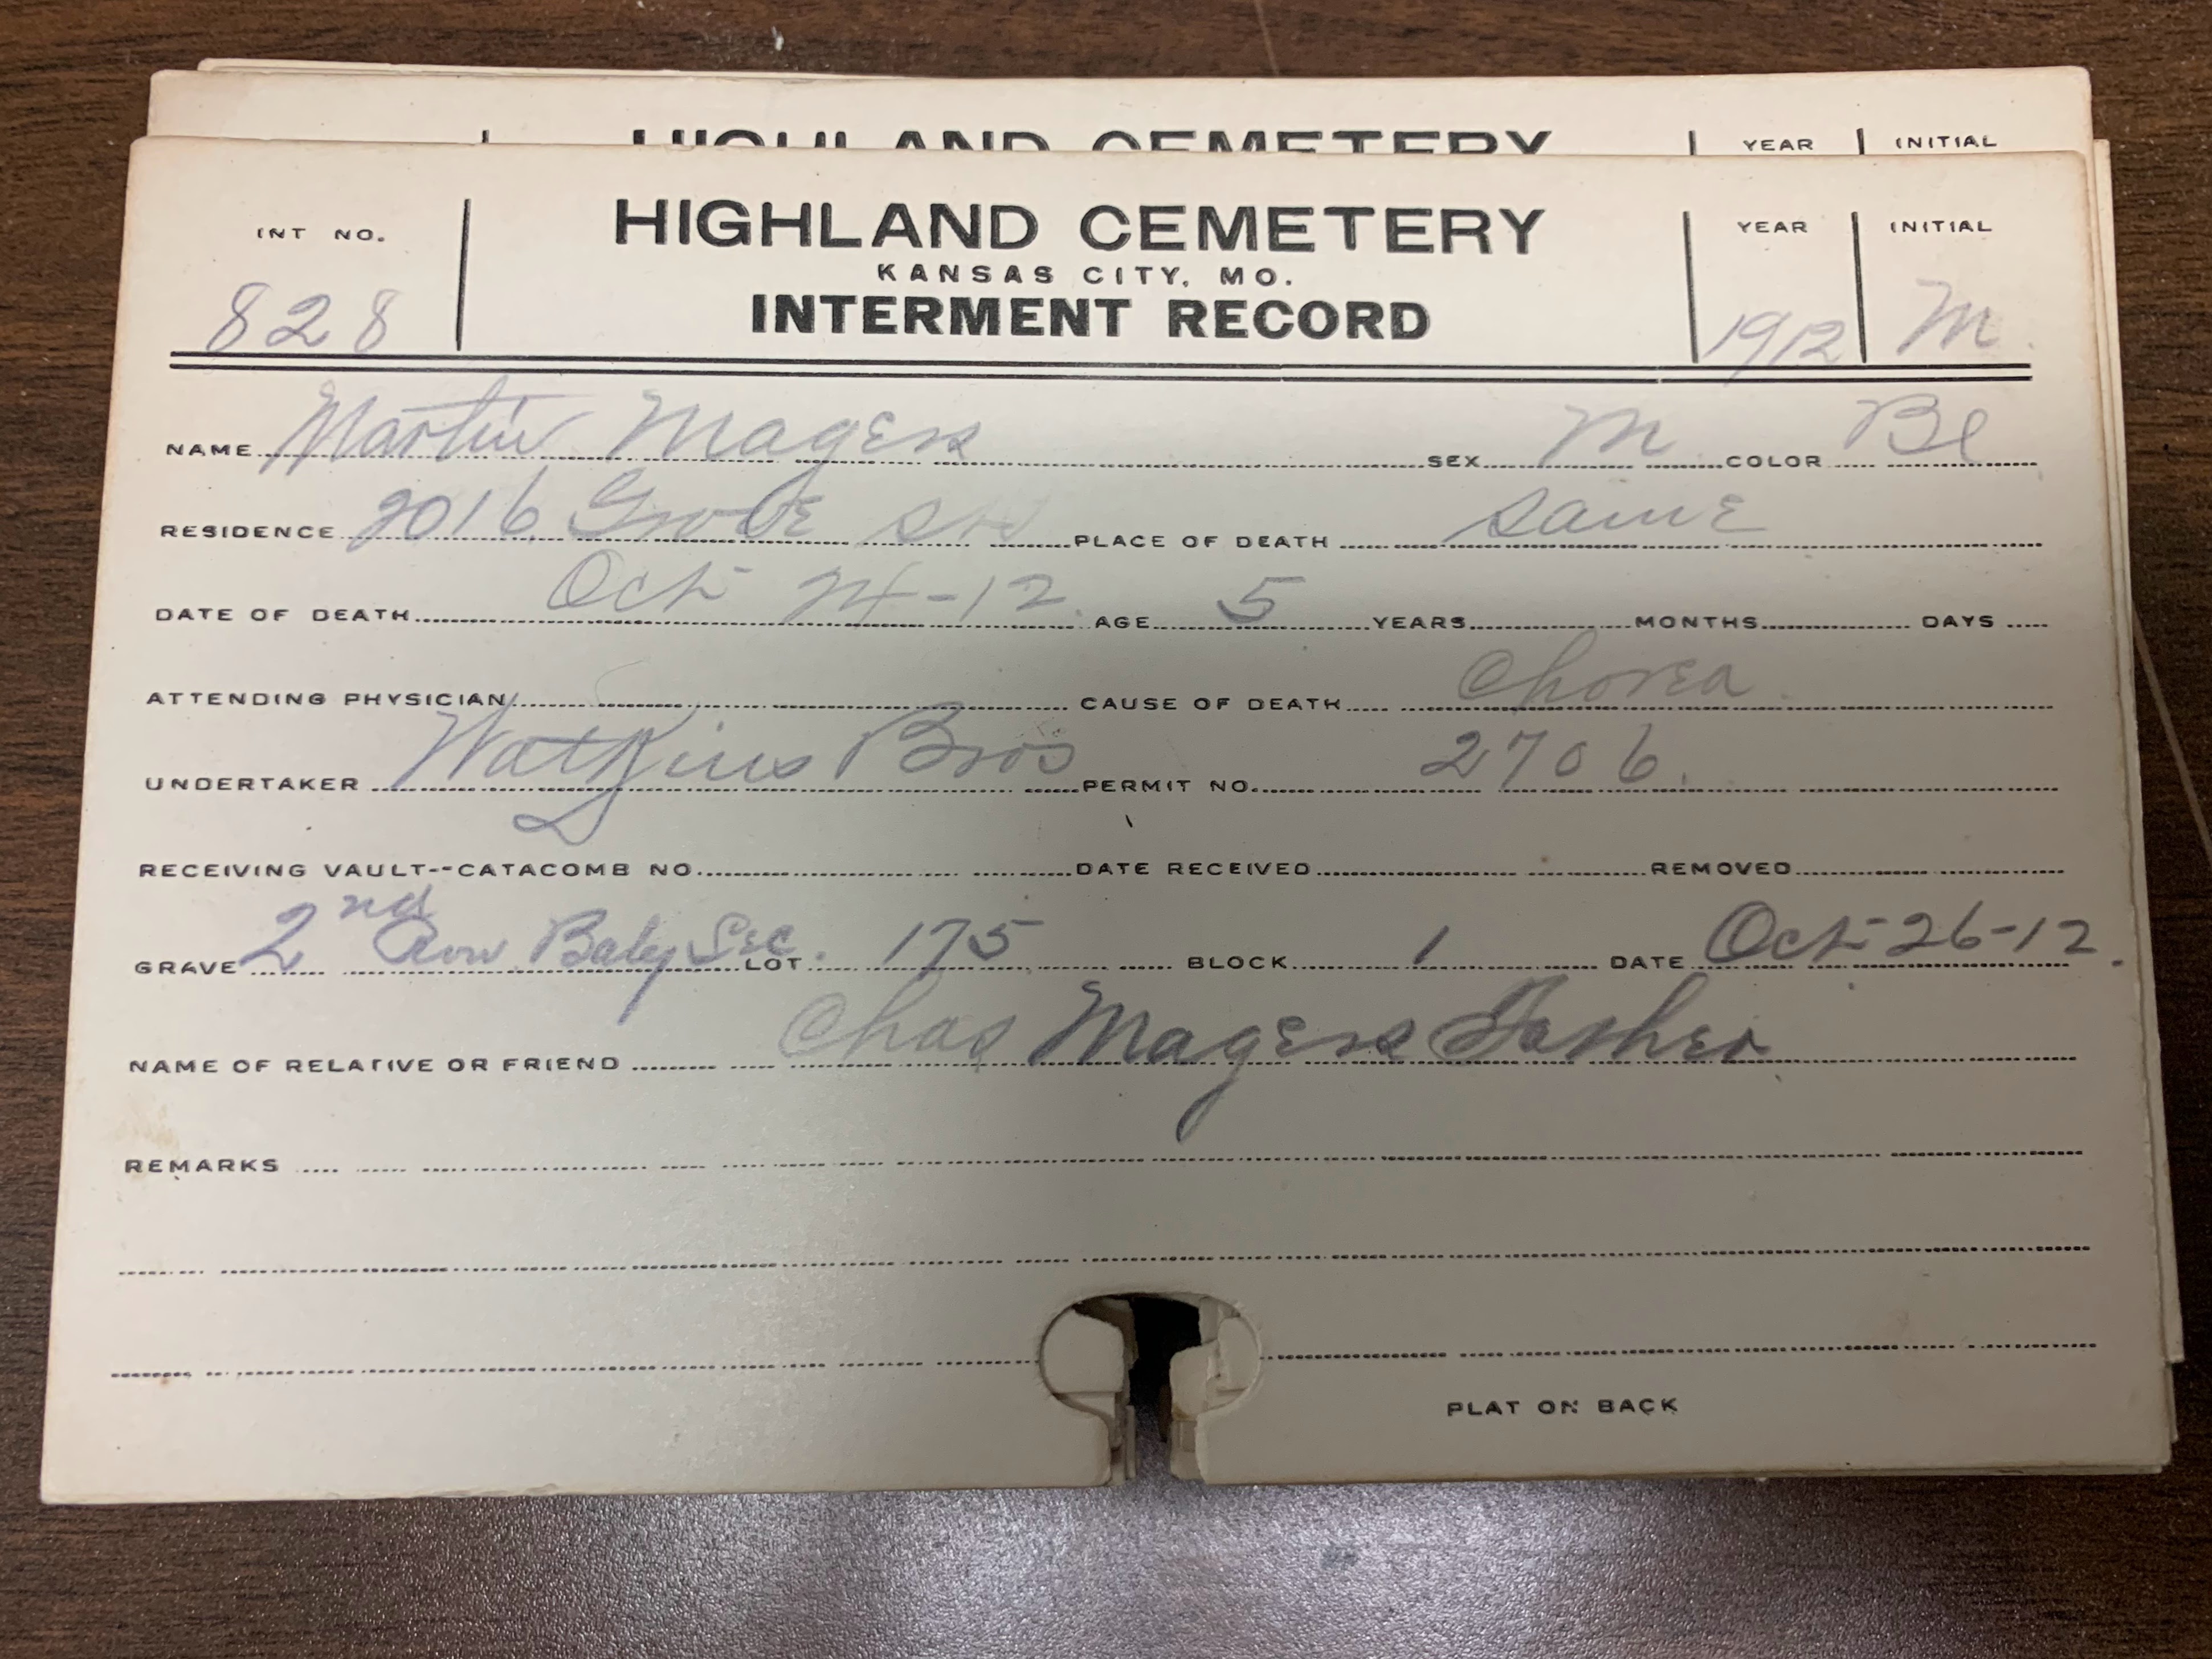 HIGHLAND CEMETERY YEAR INITIAL
INT NO. HIGHLAND CEMETERY YEAR INITIAL
KANSAS CITY, MO.
828 INTERMENT RECORD 1912 M.
NAME Martin Magers SEX M COLOR Bl
RESIDENCE 2016 Grove PLACE OF DEATH same
DATE OF DEATH Oct 24-12. AGE 5 YEARS MONTHS DAYS
ATTENDING PHYSICIAN CAUSE OF DEATH Chorea.
UNDERTAKER Watkins Bros PERMIT NO. 2706.
RECEIVING VAULT--CATACOMB NO. DATE RECEIVED REMOVED
GRAVE 2nd Row Baby Sec. LOT 175 BLOCK 1 DATE Oct 26-12.
NAME OF RELATIVE OR FRIEND Chas Magers Father
REMARKS
PLAT ON BACK